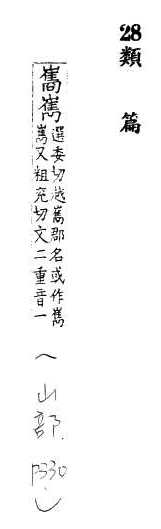 28類　篇
嶲嶲
選委切越嶲郡名或作嶲
嶲又粗兖切文二重音一
(山部. P330)